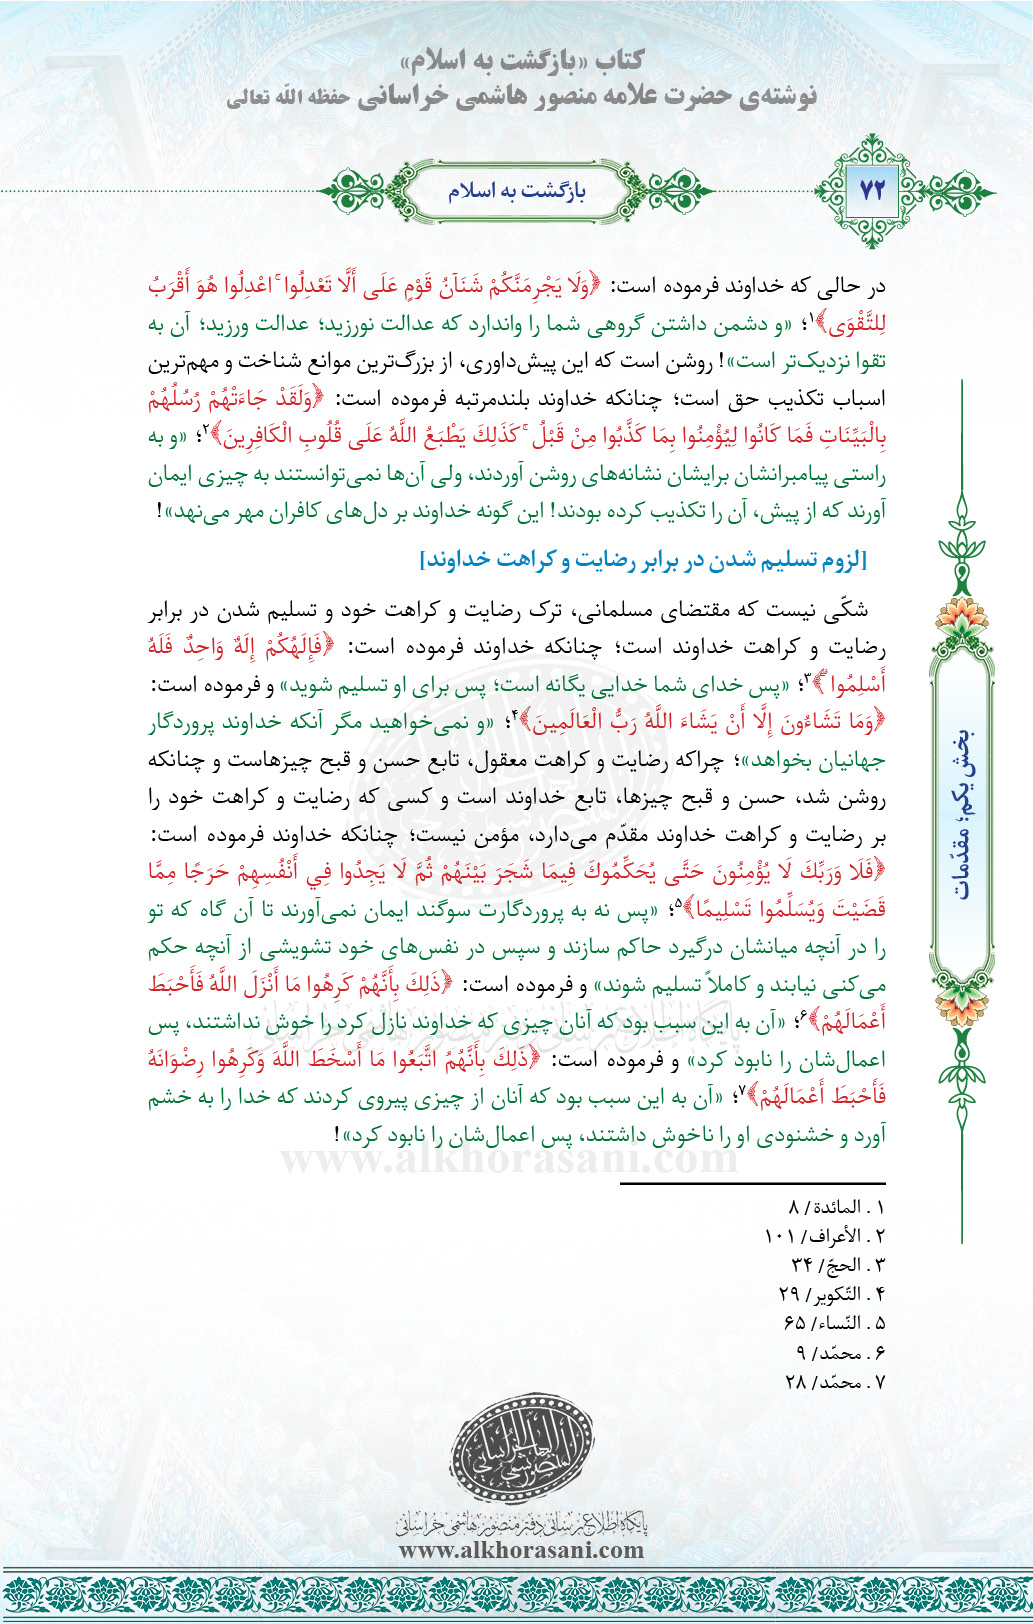 کتاب «بازگشت به اسلام»
نوشته‌ی حضرت علامه منصور هاشمی خراسانی حفظه الله تعالی
۷۲
بازگشت به اسلام
در حالی که خداوند فرموده است: ﴿وَلَا يَجْرِمَنَّكُمْ شَنَآنُ قَوْمٍ عَلَى أَلَّا تَعْدِلُوا ۚ اعْدِلُوا هُوَ أَقْرَبُ
لِلتَّقْوَى﴾۱؛ «و دشمن داشتن گروهی شما را واندارد که عدالت نورزید؛ عدالت ورزید؛ آن به
تقوا نزدیک‌تر است»! روشن است که این پیش‌داوری، از بزرگ‌ترین موانع شناخت و مهم‌ترین
اسباب تکذیب حق است؛ چنانکه خداوند بلندمرتبه فرموده است: ﴿وَلَقَدْ جَاءَتْهُمْ رُسُلُهُمْ
بِالْبَيِّنَاتِ فَمَا كَانُوا لِيُؤْمِنُوا بِمَا كَذَّبُوا مِنْ قَبْلُ ۚ كَذَلِكَ يَطْبَعُ اللَّهُ عَلَى قُلُوبِ الْكَافِرِينَ﴾۲؛ «و به
راستی پیامبرانشان برایشان نشانه‌های روشن آوردند، ولی آن‌ها نمی‌توانستند به چیزی ایمان
آورند که از پیش، آن را تکذیب کرده بودند! این گونه خداوند بر دل‌های کافران مهر می‌نهد»!
[لزوم تسلیم شدن در برابر رضایت و کراهت خداوند]
شکّی نیست که مقتضای مسلمانی، ترک رضایت و کراهت خود و تسلیم شدن در برابر
رضایت و کراهت خداوند است؛ چنانکه خداوند فرموده است: ﴿فَإِلَهُكُمْ إِلَهٌ وَاحِدٌ فَلَهُ
أَسْلِمُوا ۗ﴾۳؛ «پس خدای شما خدایی یگانه است؛ پس برای او تسلیم شوید» و فرموده است:
﴿وَمَا تَشَاءُونَ إِلَّا أَنْ يَشَاءَ اللَّهُ رَبُّ الْعَالَمِينَ﴾۴؛ «و نمی‌خواهید مگر آنکه خداوند پروردگار
جهانیان بخواهد»؛ چراکه رضایت و کراهت معقول، تابع حسن و قبح چیزهاست و چنانکه
روشن شد، حسن و قبح چیزها، تابع خداوند است و کسی که رضایت و کراهت خود را
بر رضایت و کراهت خداوند مقدّم می‌دارد، مؤمن نیست؛ چنانکه خداوند فرموده است:
﴿فَلَا وَرَبِّكَ لَا يُؤْمِنُونَ حَتَّى يُحَكِّمُوكَ فِيمَا شَجَرَ بَيْنَهُمْ ثُمَّ لَا يَجِدُوا فِي أَنْفُسِهِمْ حَرَجًا مِمَّا
قَضَيْتَ وَيُسَلِّمُوا تَسْلِيمًا﴾۵؛ «پس نه به پروردگارت سوگند ایمان نمی‌آورند تا آن گاه که تو
را در آنچه میانشان درگیرد حاکم سازند و سپس در نفس‌های خود تشویشی از آنچه حکم
می‌کنی نیابند و کاملاً تسلیم شوند» و فرموده است: ﴿ذَلِكَ بِأَنَّهُمْ كَرِهُوا مَا أَنْزَلَ اللَّهُ فَأَحْبَطَ
أَعْمَالَهُمْ﴾۶؛ «آن به این سبب بود که آنان چیزی که خداوند نازل کرد را خوش نداشتند، پس
اعمال‌شان را نابود کرد» و فرموده است: ﴿ذَلِكَ بِأَنَّهُمُ اتَّبَعُوا مَا أَسْخَطَ اللَّهَ وَكَرِهُوا رِضْوَانَهُ
فَأَحْبَطَ أَعْمَالَهُمْ﴾۷؛ «آن به این سبب بود که آنان از چیزی پیروی کردند که خدا را به خشم
آورد و خشنودی او را ناخوش داشتند، پس اعمال‌شان را نابود کرد»!
www.alkhorasani.com
بخش یکم؛ مقدّمات
۱ . المائدة/ ۸
۲ . الأعراف/ ۱۰۱
۳ . الحجّ/ ۳۴
۴ . التّکویر/ ۲۹
۵ . النّساء/ ۶۵
۶ . محمّد/ ۹
۷ . محمّد/ ۲۸
پایگاه اطلاع‌رسانی دفتر منصور هاشمی خراسانی
www.alkhorasani.com